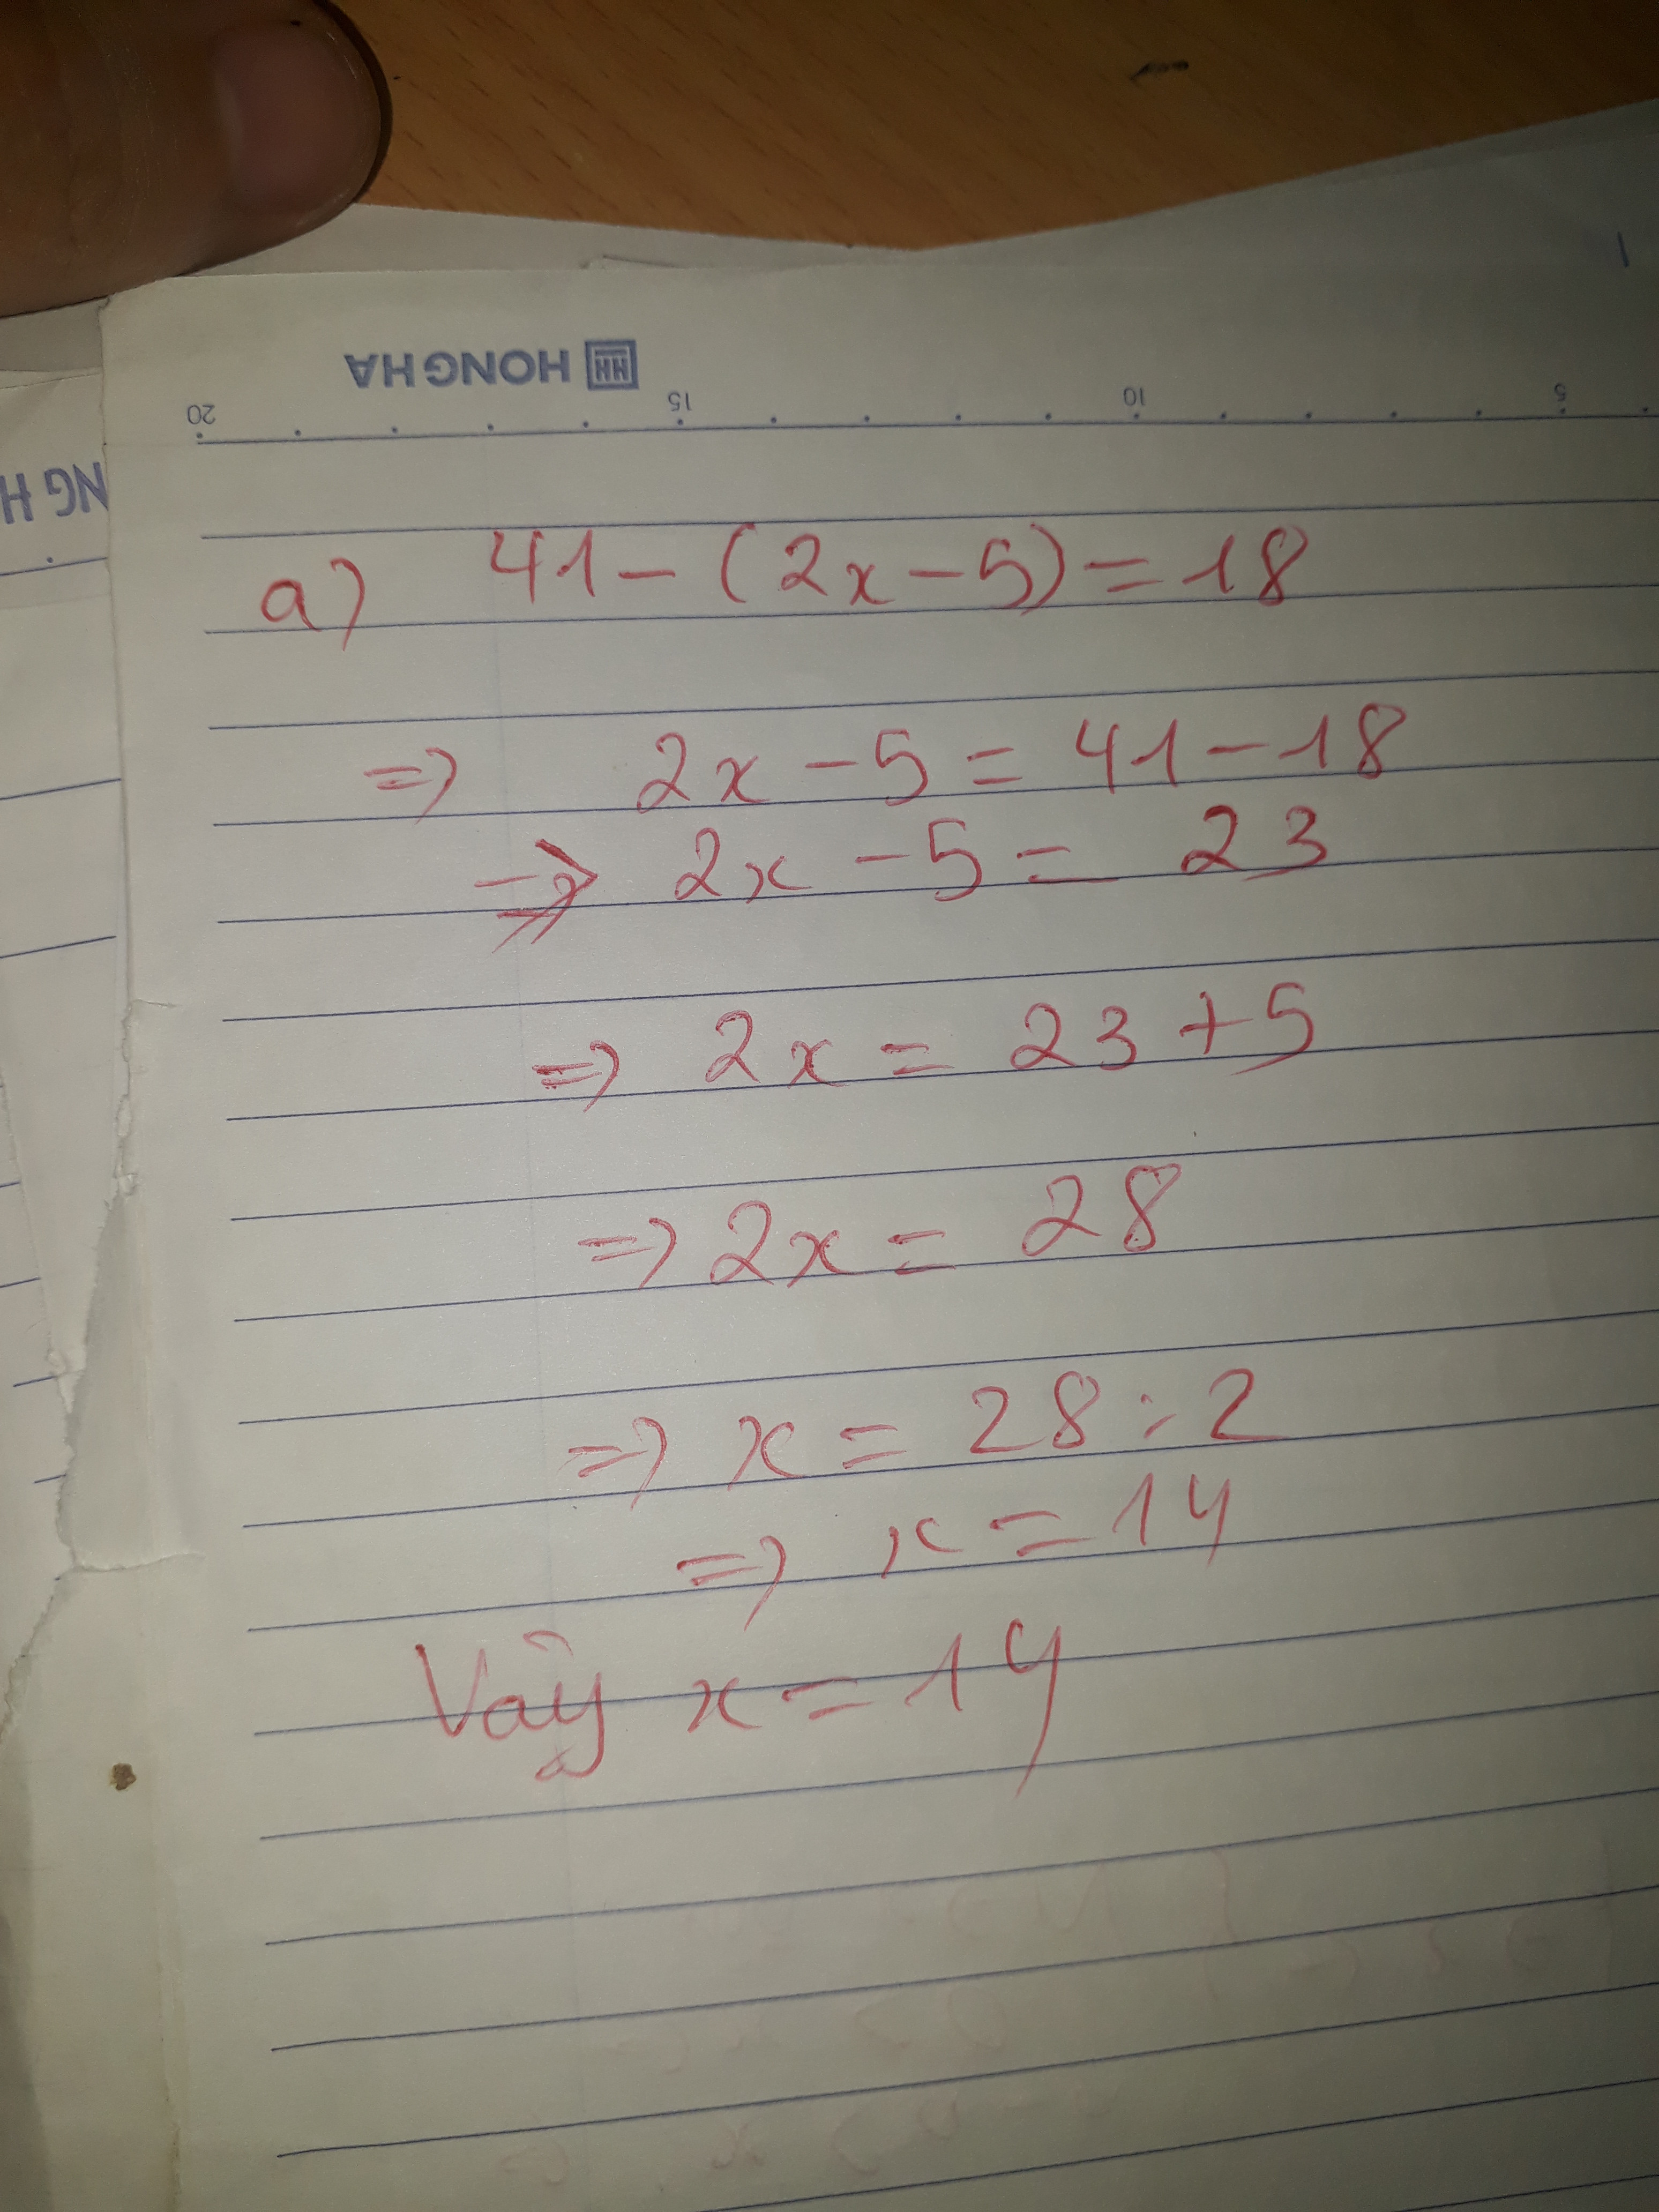 HONG HA
20 15 10 5
NG H
a) 41 - (2x - 5) = 18
=> 2x - 5 = 41 - 18
=> 2x - 5 = 23
=> 2x = 23 + 5
=> 2x = 28
=> x = 28 : 2
=> x = 14
Vậy x = 14